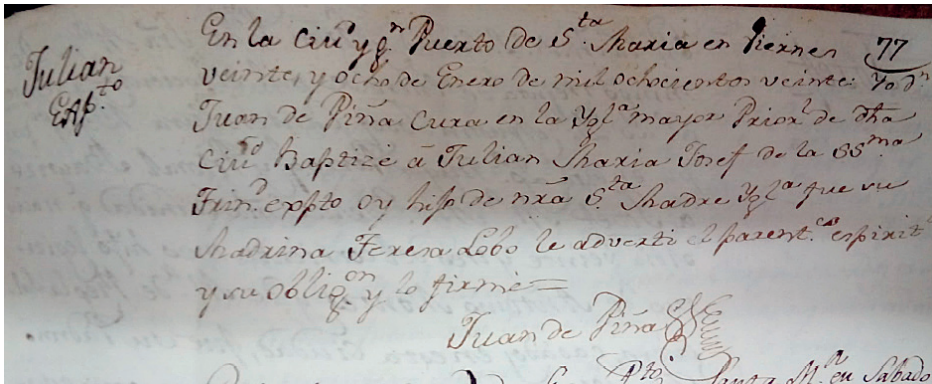 Julian
Exp.to
77
En la Ciud y gn Puerto de S.ta Maria en Viernes
veinte, y ocho de Enero de mil ochocientos veinte: Yo dn
Juan de Piña Cura en la Ygla mayor Priorl de dha
Ciud Baptizé â Julian Maria Josef de la SSma
Trind expto oy hijo de nra S.ta Madre Ygla fue su
Madrina Teresa Lobo le adverti el parentco espirit
y su obligon y lo firmé=
Juan de Piña
Pto Santa Ma en Sabado